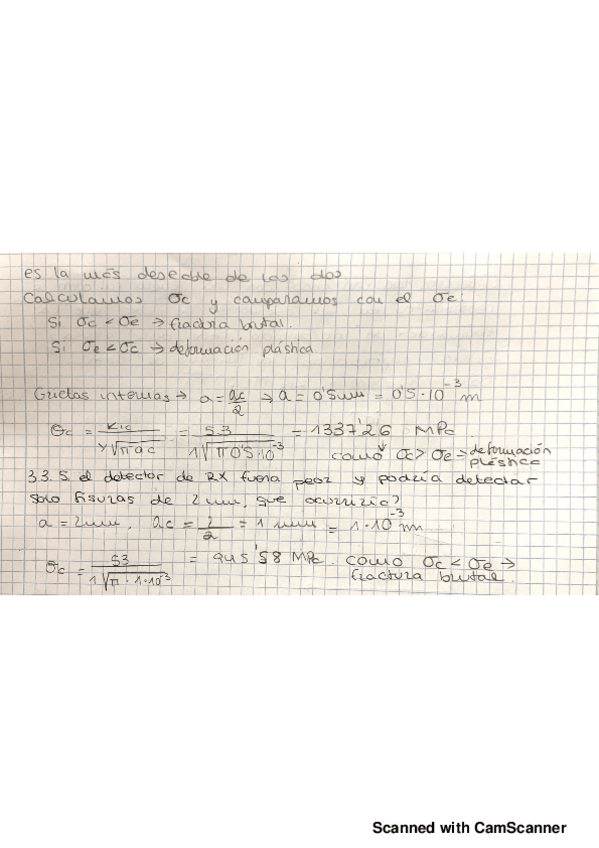 es la más deseable de las dos
Calculamos σc y comparamos con el σe:
Si σc < σe → fractura brutal.
Si σe < σc → deformación plástica
Grietas internas → a = ac/2 → a = 0'5mm = 0'5·10⁻³ m
σc = KIC / Y√π ac = 53 / 1√π 0'5·10⁻³ = 1337'26 MPa
como σc > σe → deformación plástica
3.3. Si el detector de RX fuera peor y podría detectar
solo fisuras de 2mm, que ocurriría?
a = 2mm, ac = 2/2 = 1 mm = 1·10⁻³ m
σc = 53 / 1√π · 1·10⁻³ = 945'58 MPa. como σc < σe →
fractura brutal.
Scanned with CamScanner